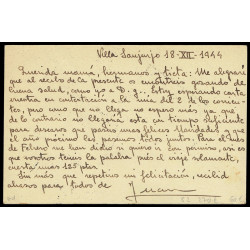 Villa Sanjurjo 18-XII-1944
Querida mamá, hermanos y tieta: Me alegraré
que al recibo de la presente os encontreis gozando de
buena salud, como yo a D. g.. Estoy esperando carta
vuestra en contestación a la mia del 2 de los corrien-
tes, pero como que no llega no espero más ya que
de lo contrario no llegaria esta con tiempo suficiente
para desearos que paseis unas felices Navidades y que
el año próximo las pasemos todos juntos. Para el mes
de Febrero me han dicho si quiero ir con permiso, asi es
que vosotros teneis la palabra, pués el viaje solamente,
cuesta unas 125 ptas.
Sin más que repetiros mi felicitación, recibid
abrazos para todos de
Juan